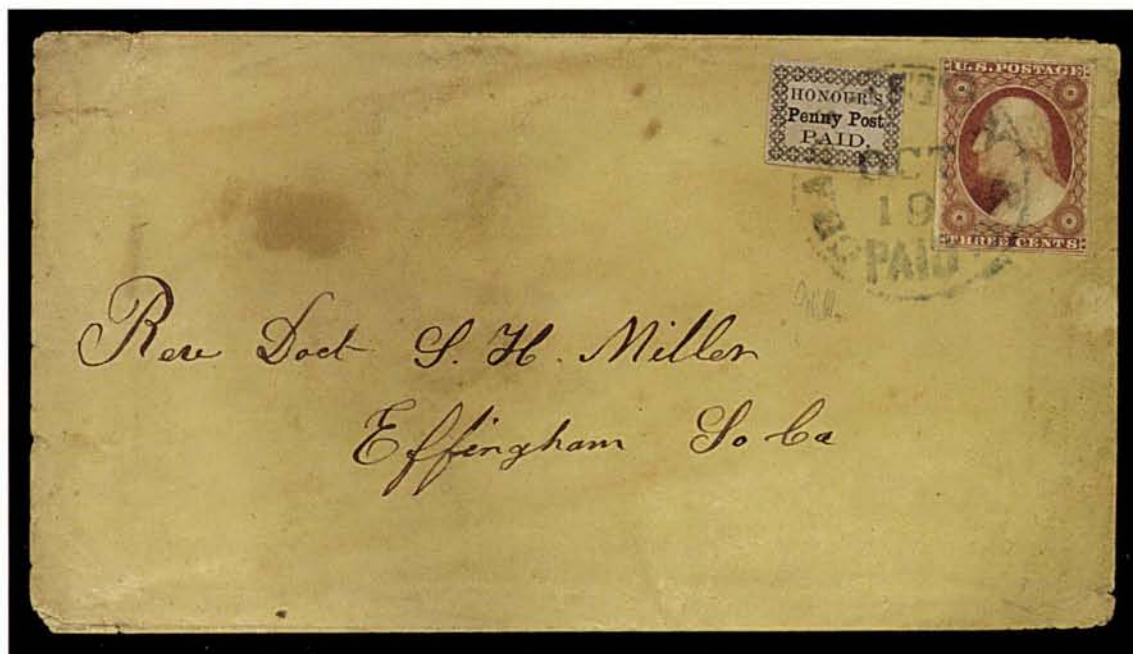 HONOUR'S
Penny Post
PAID.
U.S. POSTAGE
THREE CENTS
OCT
19
PAID
Rev Doct S. H. Miller
Effingham So Ca